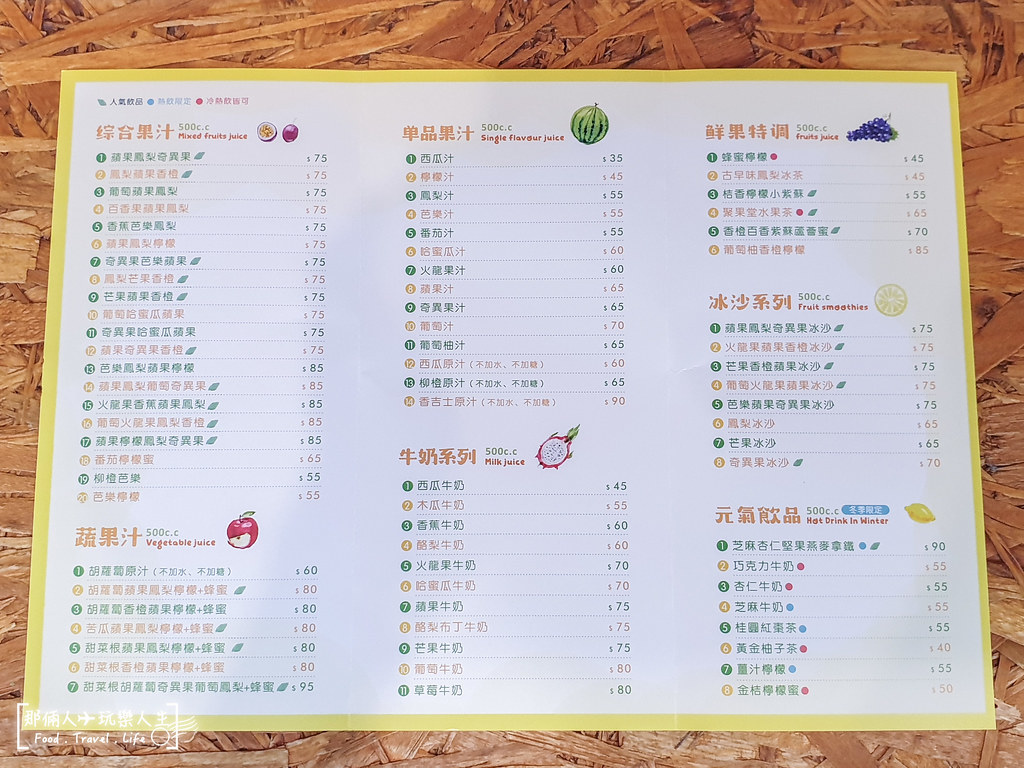 人氣飲品 ● 熱飲限定 ● 冷熱飲皆可
综合果汁 500c.c Mixed fruits juice
1 蘋果鳳梨奇異果 $ 75
2 鳳梨蘋果香橙 $ 75
3 葡萄蘋果鳳梨 $ 75
4 百香果蘋果鳳梨 $ 75
5 香蕉芭樂鳳梨 $ 75
6 蘋果鳳梨檸檬 $ 75
7 奇異果芭樂蘋果 $ 75
8 鳳梨芒果香橙 $ 75
9 芒果蘋果香橙 $ 75
10 葡萄哈蜜瓜蘋果 $ 75
11 奇異果哈蜜瓜蘋果 $ 75
12 蘋果奇異果香橙 $ 75
13 芭樂鳳梨蘋果檸檬 $ 85
14 蘋果鳳梨葡萄奇異果 $ 85
15 火龍果香蕉蘋果鳳梨 $ 85
16 葡萄火龍果鳳梨香橙 $ 85
17 蘋果檸檬鳳梨奇異果 $ 85
18 番茄檸檬蜜 $ 65
19 柳橙芭樂 $ 55
20 芭樂檸檬 $ 55
蔬果汁 500c.c Vegetable juice
1 胡蘿蔔原汁(不加水、不加糖) $ 60
2 胡蘿蔔蘋果鳳梨檸檬+蜂蜜 $ 80
3 胡蘿蔔香橙蘋果檸檬+蜂蜜 $ 80
4 苦瓜蘋果鳳梨檸檬+蜂蜜 $ 80
5 甜菜根蘋果鳳梨檸檬+蜂蜜 $ 80
6 甜菜根香橙蘋果檸檬+蜂蜜 $ 80
7 甜菜根胡蘿蔔奇異果葡萄鳳梨+蜂蜜 $ 95
单品果汁 500c.c Single flavour juice
1 西瓜汁 $ 35
2 檸檬汁 $ 45
3 鳳梨汁 $ 55
4 芭樂汁 $ 55
5 番茄汁 $ 55
6 哈蜜瓜汁 $ 60
7 火龍果汁 $ 60
8 蘋果汁 $ 65
9 奇異果汁 $ 65
10 葡萄汁 $ 70
11 葡萄柚汁 $ 65
12 西瓜原汁(不加水、不加糖) $ 60
13 柳橙原汁(不加水、不加糖) $ 65
14 香吉士原汁(不加水、不加糖) $ 90
牛奶系列 500c.c Milk juice
1 西瓜牛奶 $ 45
2 木瓜牛奶 $ 55
3 香蕉牛奶 $ 60
4 酪梨牛奶 $ 60
5 火龍果牛奶 $ 70
6 哈蜜瓜牛奶 $ 70
7 蘋果牛奶 $ 75
8 酪梨布丁牛奶 $ 75
9 芒果牛奶 $ 75
10 葡萄牛奶 $ 80
11 草莓牛奶 $ 80
鲜果特调 500c.c fruits juice
1 蜂蜜檸檬 ● $ 45
2 古早味鳳梨冰茶 $ 45
3 桔香檸檬小紫蘇 $ 55
4 聚果堂水果茶 ● $ 65
5 香橙百香紫蘇蘆薈蜜 $ 70
6 葡萄柚香橙檸檬 $ 85
冰沙系列 500c.c Fruit smoothies
1 蘋果鳳梨奇異果冰沙 $ 75
2 火龍果蘋果香橙冰沙 $ 75
3 芒果香橙蘋果冰沙 $ 75
4 葡萄火龍果蘋果冰沙 $ 75
5 芭樂蘋果奇異果冰沙 $ 75
6 鳳梨冰沙 $ 65
7 芒果冰沙 $ 65
8 奇異果冰沙 $ 70
元氣飲品 500c.c 冬季限定 Hot Drink In Winter
1 芝麻杏仁堅果燕麥拿鐵 ● $ 90
2 巧克力牛奶 ● $ 55
3 杏仁牛奶 ● $ 55
4 芝麻牛奶 ● $ 55
5 桂圓紅棗茶 ● $ 55
6 黃金柚子茶 ● $ 40
7 薑汁檸檬 ● $ 55
8 金桔檸檬蜜 ● $ 50
那倆人玩樂人生
Food . Travel . Life